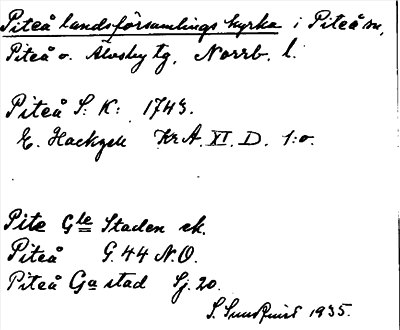 Piteå landsförsamlings kyrka i Piteå sn,
Piteå o. Älvsby tg, Norrb. l.
Piteå S: K: 1743.
E. Hackzell Kr A. XI. D. 1:o.
Pite Gle Staden sk.
Piteå G.44 N.O.
Piteå Ga stad Sj. 20.
S. Sundqvist 1935.